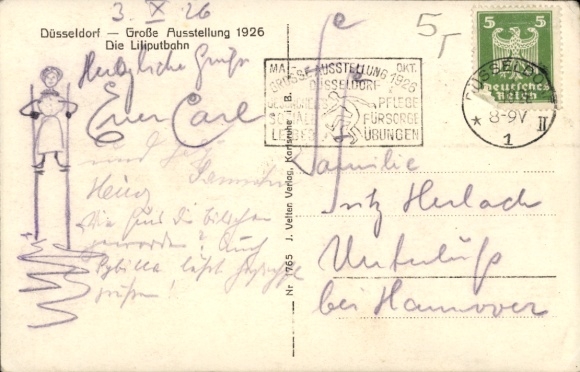 3. X 26
Düsseldorf — Große Ausstellung 1926
Die Liliputbahn
Herzliche Grüße
Euer Carl
und
Heinz
Wie sind die Bilchen
geworden? Auch
Sybilla läßt
grüßen!
Nr. 1765 J. Velten Verlag, Karlsruhe i. B.
5
MAI OKT.
GROSSE AUSSTELLUNG 1926
DÜSSELDORF
GESUNDHEITS PFLEGE
SOZIALE FÜRSORGE
LEIBES ÜBUNGEN
5 5
Deutsches
Reich
DÜSSELDORF
8-9V
* 1 II
Familie
Fritz Herlach
Unterlüß
bei Hannover